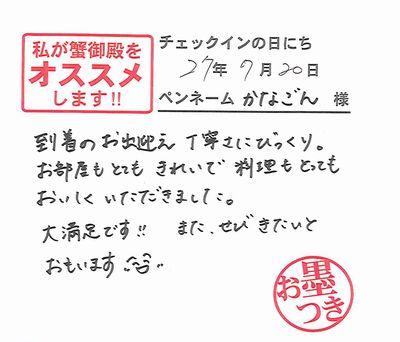 私が蟹御殿を
オススメ
します!!
チェックインの日にち
27年 9月 20日
ペンネーム かなごん 様
到着のお出迎え 丁寧さにびっくり。
お部屋もとても きれいで 料理もとっても
おいしくいただきました。
大満足です!! また、ぜひきたいと
おもいます
お墨つき